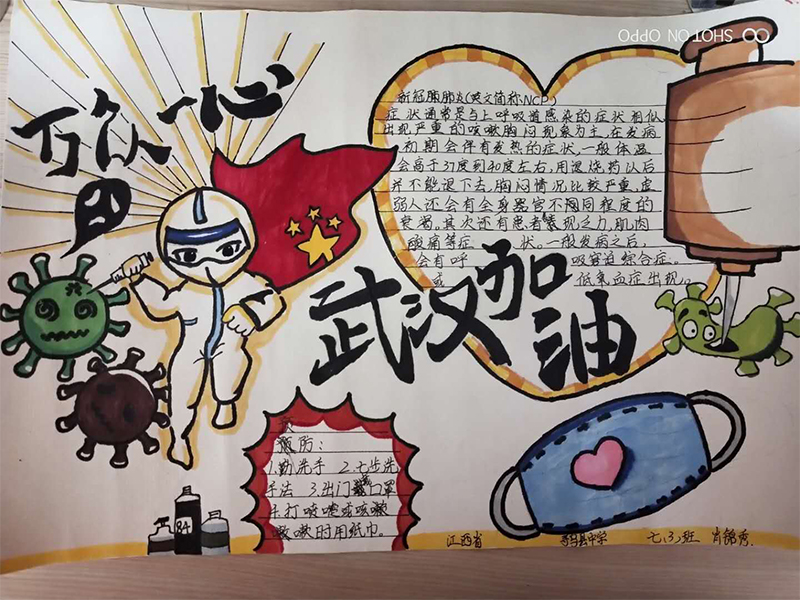 SHOT ON OPPO
万众一心
新冠肺炎(英文简称NCP)
症状通常是与上呼吸道感染的症状相似
出现严重的咳嗽胸闷现象为主,在发病
初期会伴有发热的症状,一般体温
会高于37度到40度左右,用退烧药以后
并不能退下去,胸闷情况比较严重,虚
弱人还会有全身器官不同程度的
衰竭,其次还有患者表现乏力,肌肉
酸痛等症状。一般发病之后,
会有呼吸窘迫综合症。
或低氧血症出现。
武汉加油
预防:
1.勤洗手 2.七步洗
手法 3.出门戴口罩
4.打喷嚏或咳嗽
嗽嗽时用纸巾。
84
江西省 县中学 七(3)班 肖锦秀.